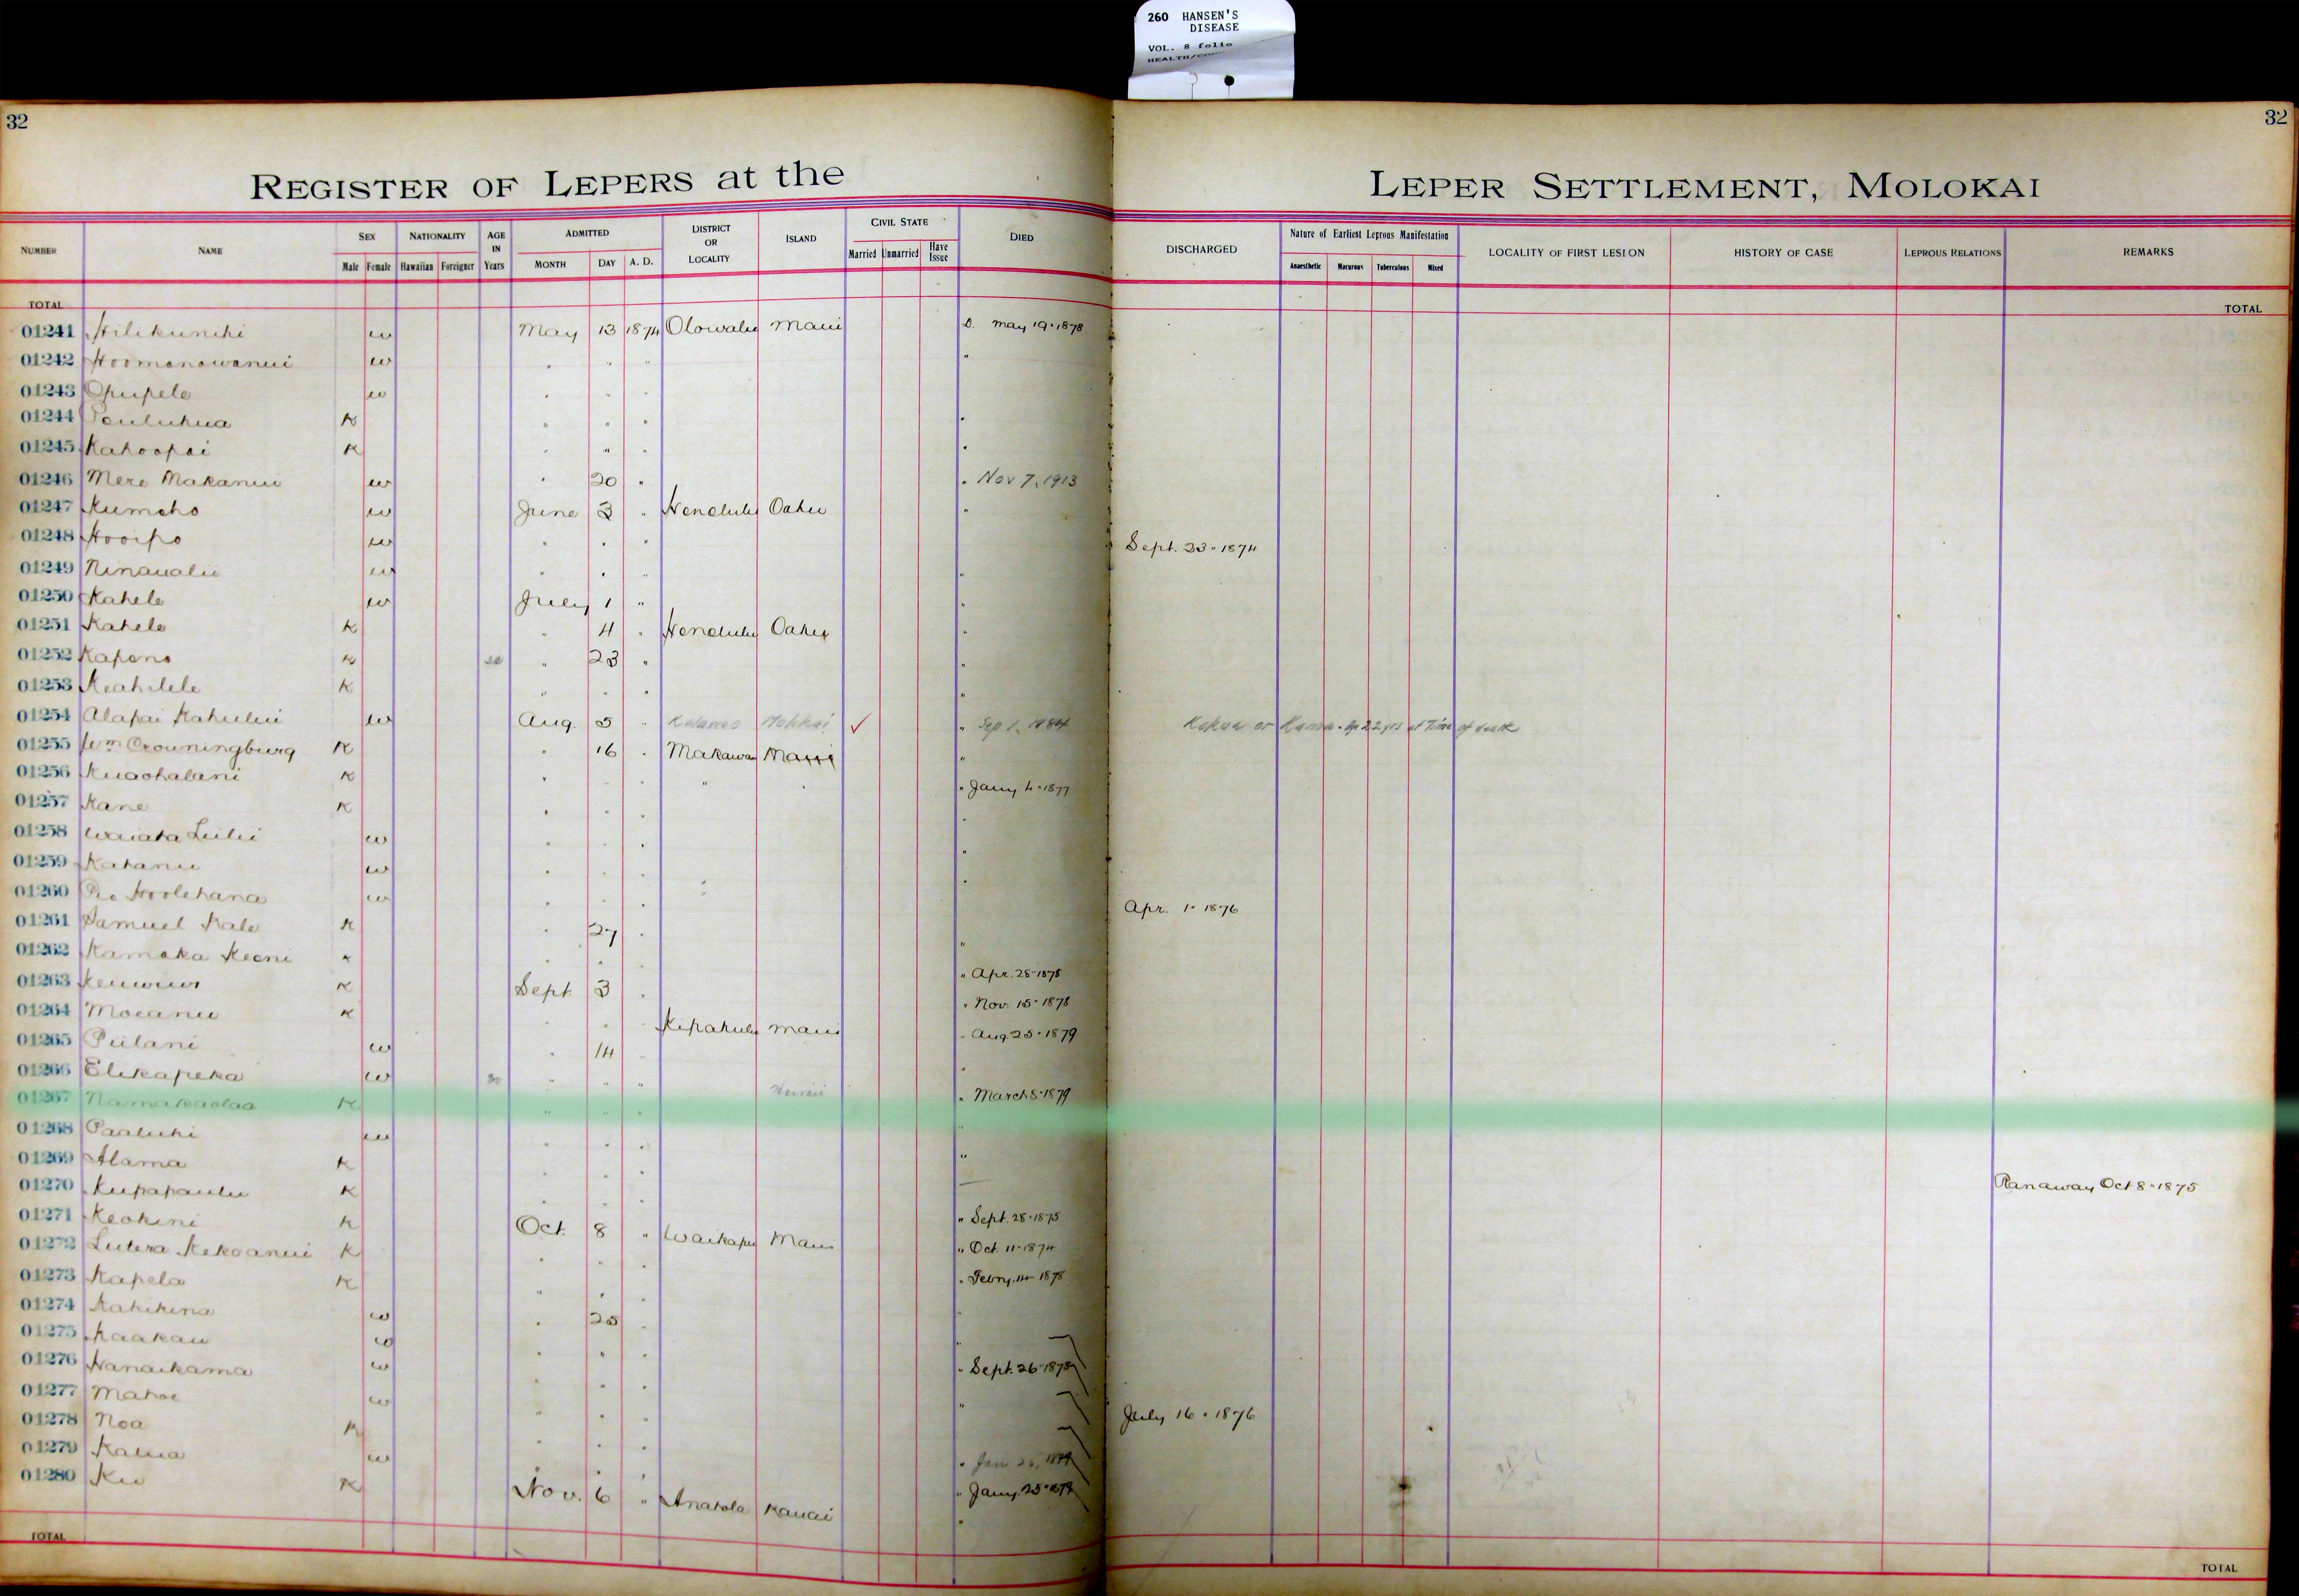 260 HANSEN'S
DISEASE
VOL. 8 folio
32
32
REGISTER OF LEPERS at the LEPER SETTLEMENT, MOLOKAI
NUMBER NAME SEX NATIONALITY AGE IN Years ADMITTED DISTRICT OR LOCALITY ISLAND CIVIL STATE DIED DISCHARGED Nature of Earliest Leprous Manifestation LOCALITY OF FIRST LESION HISTORY OF CASE LEPROUS RELATIONS REMARKS
Male Female Hawaiian Foreigner MONTH DAY A. D. Married Unmarried Have Issue Anaesthetic Macurous Tuberculous Mixed
TOTAL TOTAL
01241 Hilikunihi w May 13 1874 Olowalu Maui D. May 19 · 1878
01242 Hoomanawanui w " " " "
01243 Opupele w " " "
01244 K " " " "
01245 Kahoopai K " " " "
01246 Mere Makanui w " 20 " " Nov 7, 1913
01247 Kumeho w June 3 " Honolulu Oahu "
01248 Hooipo w " " " Sept. 23 · 1874
01249 Ninaualii w " " " "
01250 Kahele w July 1 " "
01251 Kahele K " 4 " Honolulu Oahu "
01252 Kapono K " 23 " "
01253 Keahilele K " " " "
01254 Alapai Kahului w Aug. 5 " Molokai ✓ " Sep 1, 1884 Kokua or 22 yrs at Time of death
01255 Wm Crowningburg K " 16 " Makawao Maui "
01256 Kuaohalani K " " " " " " Jany. 4 · 1877
01257 Kane K " " " "
01258 Waiata Luilii w " " " "
01259 Kahanu w " " " "
01260 Hoolehana w " " " Apr. 1 · 1876
01261 Samuel Kale K " 27 " "
01262 Kamaka Keoni K " " " " Apr. 28 · 1878
01263 K Sept. 3 " " Nov. 15 · 1878
01264 Moeanu K " " " Kipahulu Maui " Aug 25 · 1879
01265 Piilani w " 14 " "
01266 Elikapeka w 30 " " " Hawaii " March 8 · 1879
01267 Namakaolaa K " " " "
01268 Paaluhi w " " " "
01269 Alama K " " "
01270 Kupapaulu K " " " Ranaway Oct 8 · 1875
01271 Keokini K Oct. 8 " Waikapu Maui " Sept. 28 · 1875
01272 Lutera Kekoanui K " " " " Oct. 11 · 1874
01273 Kapela K " " " " Febry. 14 · 1878
01274 Kahikina w " 25 " "
01275 Kaakau w " " " "
01276 Hanaikama w " " " " Sept. 26 · 1878
01277 Mahoe w " " " "
01278 Noa K " " " July 16 · 1876
01279 Kalua w " " " " Jan
01280 Ku K Nov. 6 " Anahola Kauai " Jany. 25 ·
TOTAL TOTAL